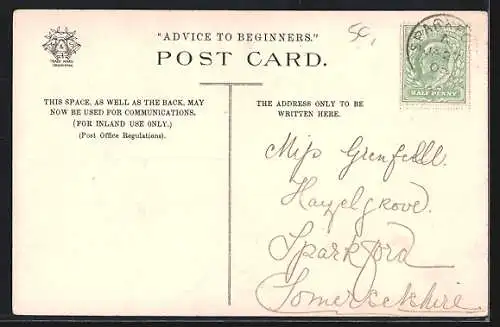 "ADVICE TO BEGINNERS."
POST CARD.
THIS SPACE, AS WELL AS THE BACK, MAY
NOW BE USED FOR COMMUNICATIONS.
(FOR INLAND USE ONLY.)
(Post Office Regulations).
THE ADDRESS ONLY TO BE
WRITTEN HERE.
HALF PENNY
Miss Grenfell.
Hazelgrove.
Sparkford
Somersetshire.